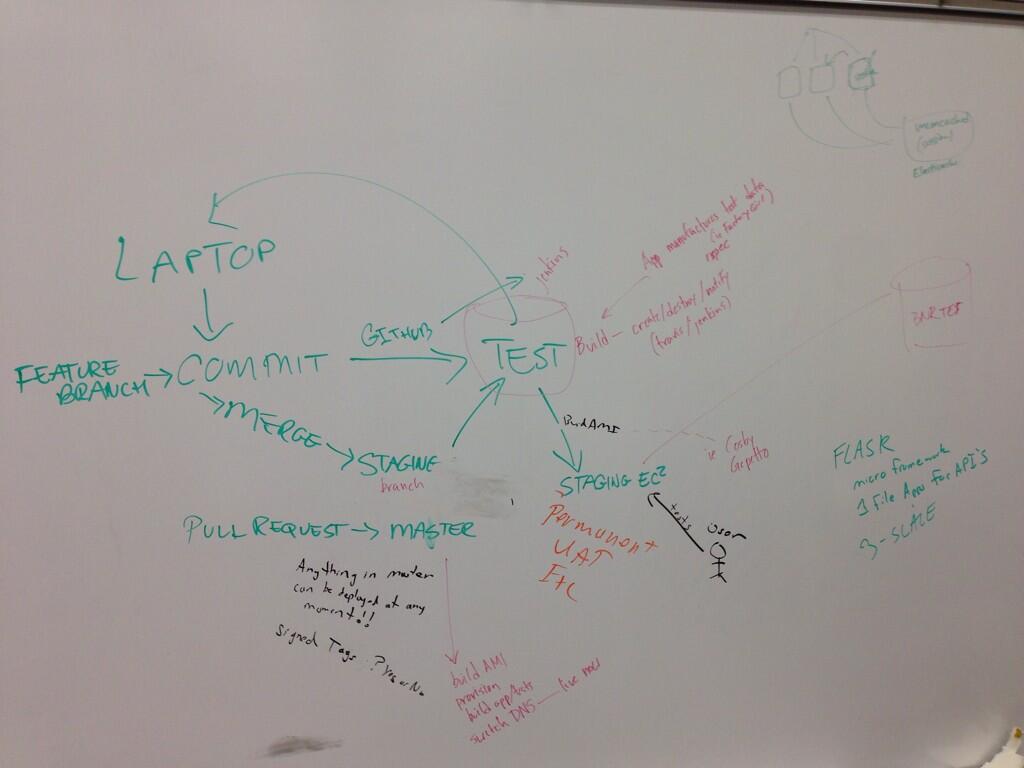 memcached
(session)
LAPTOP
Jenkins
App manufactures test data
rspec
GITHUB
TEST
Build — create/destroy/notify
(travis/jenkins)
FEATURE
BRANCH
COMMIT
MERGE
STAGING
branch
Build AMI
ie Cosby
Gepetto
STAGING EC2
Permanent
UAT
Etc
tests
User
PULL REQUEST → MASTER
Anything in master
can be deployed at any
moment!!
Signed Tags: ? Yes or No
build AMI
provision
build app/bets
switch DNS — live now
FLASK
micro framework
1 File Apps for API's
3-SCALE